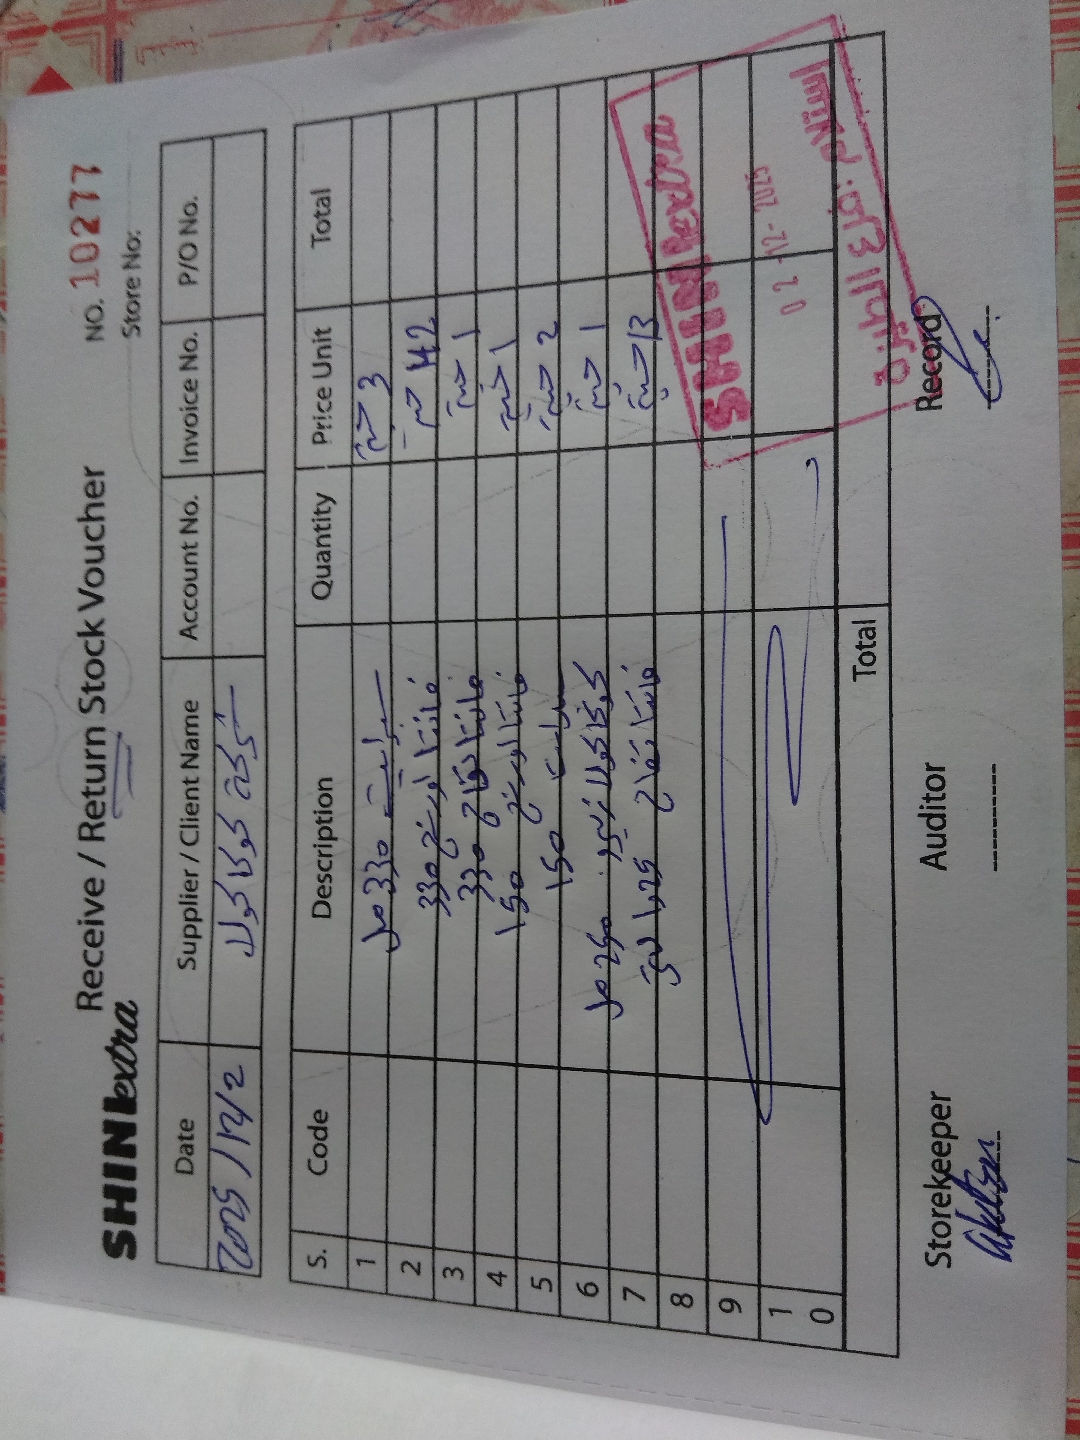 SHINE extra
Receive / Return Stock Voucher
NO. 10277
Store No:
Date Supplier / Client Name Account No. Invoice No. P/O No.
2025/12/2 شركة كوكا كولا
S. Code Description Quantity Price Unit Total
1 سبرايت 330 مل 3
2 فانتا اورنج 330
3 فانتا تفاح 330 1
4 فانتا اورنج 150 1
5 سبرايت 150 2
6 كوكا كولا زيرو 250 مل 1
7 فانتا تفاح 1,25 لتر 13
8
9
10
Total
SHINE extra
02-12-2025
استلام
Storekeeper Auditor Record